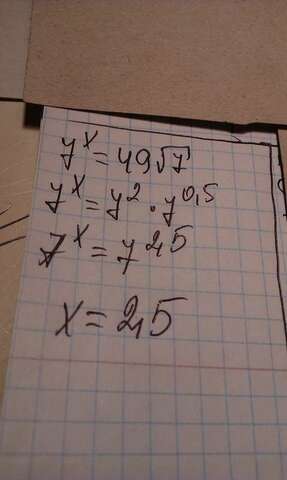 7ˣ = 49√7
7ˣ = 7² · 7⁰,⁵
7ˣ = 7²,⁵
x = 2,5